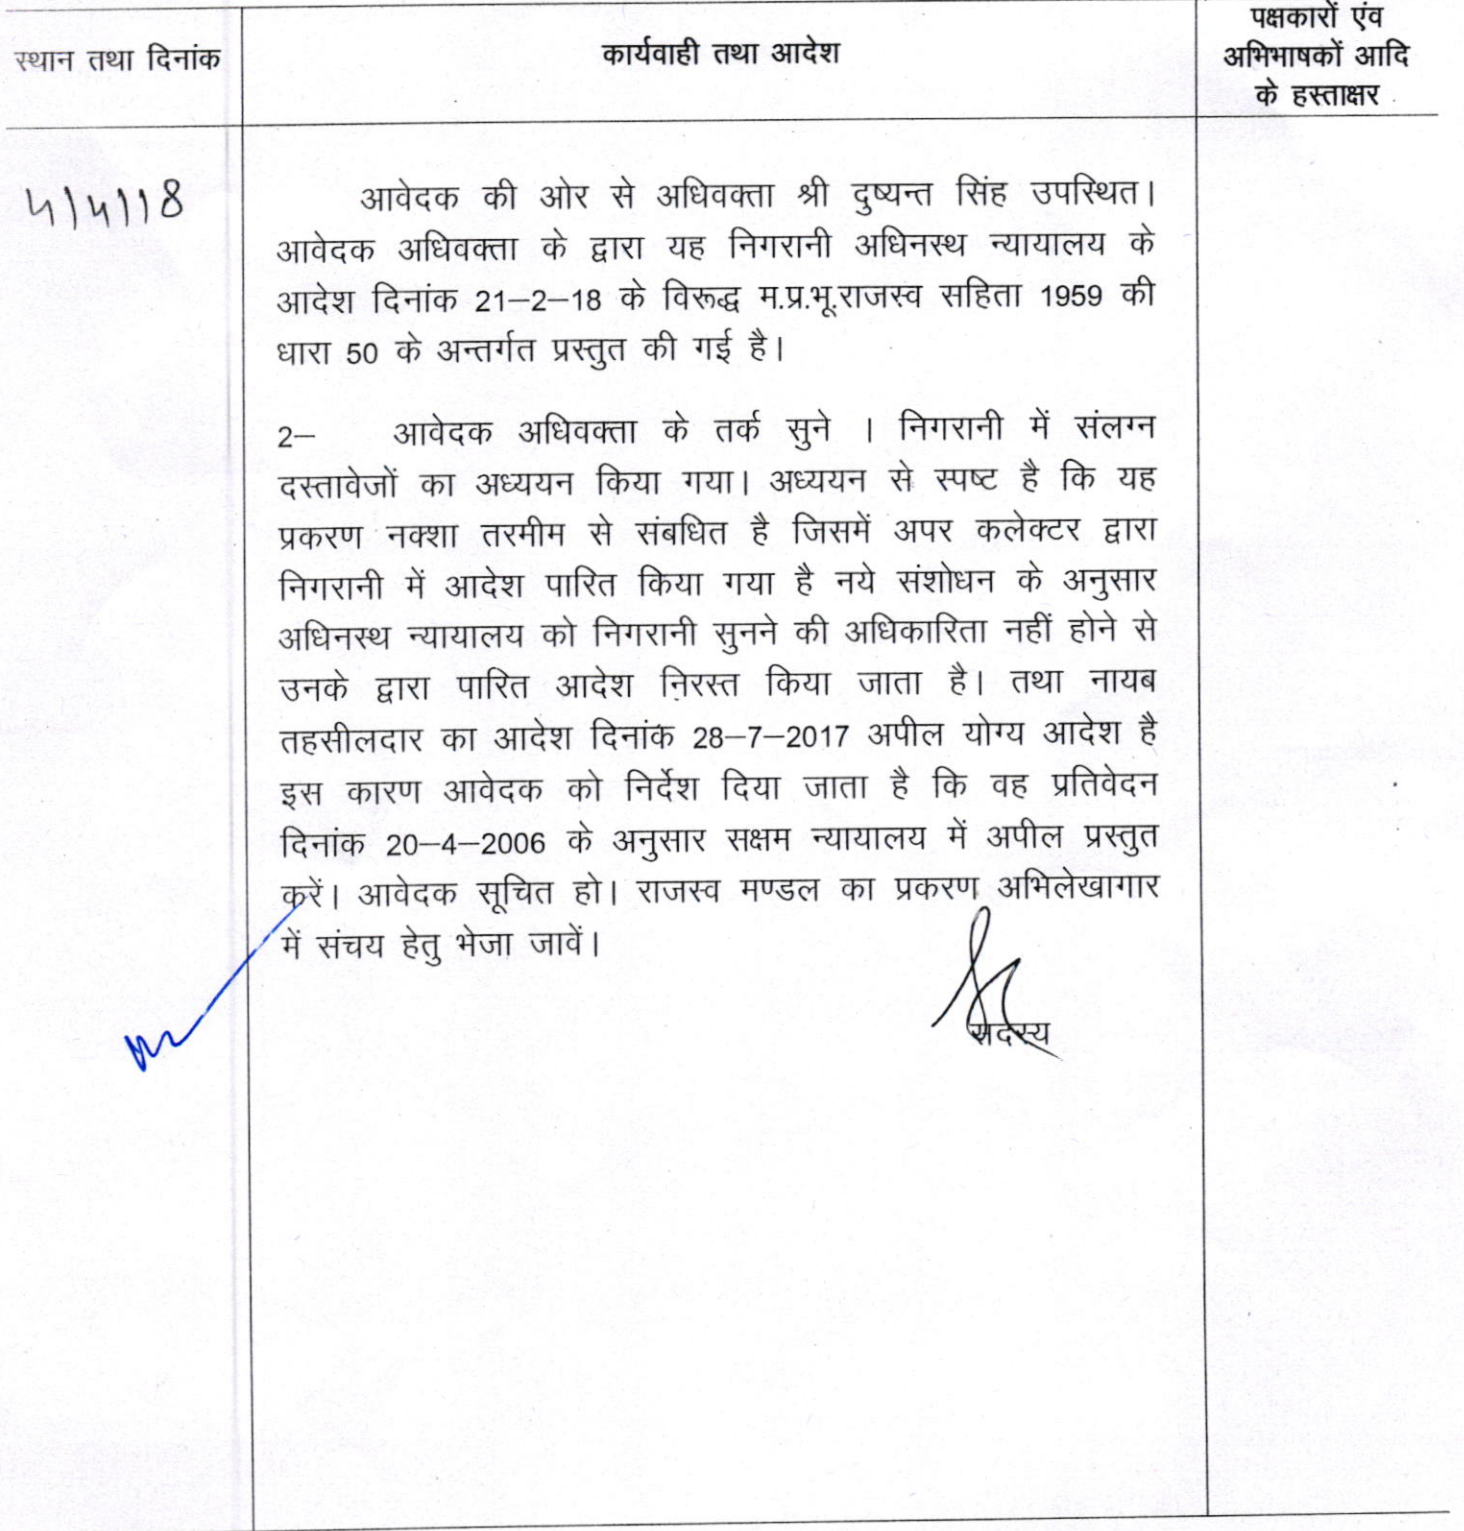 स्थान तथा दिनांक
कार्यवाही तथा आदेश
पक्षकारों एंव
अभिभाषकों आदि
के हस्ताक्षर
4/4/18
आवेदक की ओर से अधिवक्ता श्री दुष्यन्त सिंह उपस्थित।
आवेदक अधिवक्ता के द्वारा यह निगरानी अधिनस्थ न्यायालय के
आदेश दिनांक 21–2–18 के विरूद्ध म.प्र.भू.राजस्व सहिता 1959 की
धारा 50 के अन्तर्गत प्रस्तुत की गई है।
2– आवेदक अधिवक्ता के तर्क सुने । निगरानी में संलग्न
दस्तावेजों का अध्ययन किया गया। अध्ययन से स्पष्ट है कि यह
प्रकरण नक्शा तरमीम से संबधित है जिसमें अपर कलेक्टर द्वारा
निगरानी में आदेश पारित किया गया है नये संशोधन के अनुसार
अधिनस्थ न्यायालय को निगरानी सुनने की अधिकारिता नहीं होने से
उनके द्वारा पारित आदेश निरस्त किया जाता है। तथा नायब
तहसीलदार का आदेश दिनांक 28–7–2017 अपील योग्य आदेश है
इस कारण आवेदक को निर्देश दिया जाता है कि वह प्रतिवेदन
दिनांक 20–4–2006 के अनुसार सक्षम न्यायालय में अपील प्रस्तुत
करें। आवेदक सूचित हो। राजस्व मण्डल का प्रकरण अभिलेखागार
में संचय हेतु भेजा जावें।
सदस्य